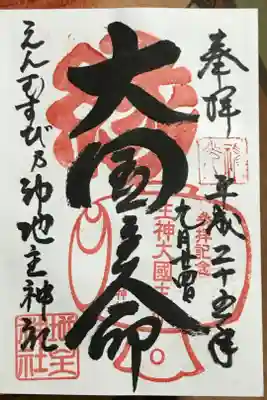 奉拝
平成二十五年
九月廿四日
大国主命
えんむすび乃神地主神社
参拝記念
主神大國主
地主神社